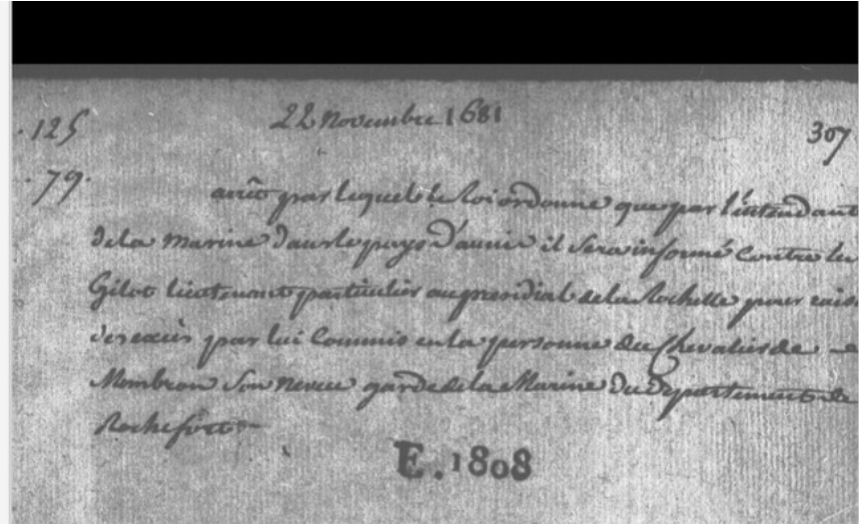 22 Novembre 1681
.125
307
.79.
arrêt par lequel le Roi ordonne que par l'intendant
de la Marine dans le pays d'aunis il sera informé Contre le
Gilot lieutenant particulier au presidial de la Rochelle pour rais
des excès par lui Commis en la personne du Chevalier de
Mombron son neveu garde de la Marine du departement de
Rochefort
E. 1808